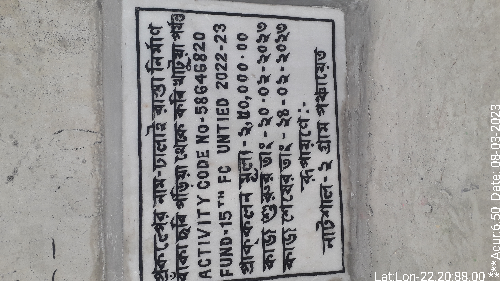 প্রকল্পের নাম-ঢালাই রাস্তা নির্মাণ
বাঁকা ছবি পড়িয়া থেকে কবি খাটুয়া পর্যন্ত
ACTIVITY CODE NO-58646820
FUND-15TH FC UNTIED 2022-23
প্রাক্-কলন মূল্য-২,৫০,০০০.০০
কাজ শুরুর তাং-২০-০২-২০২৩
কাজ শেষের তাং-২৪-০২-২০২৩
রূপায়ণে:-
নাটশাল-২ গ্রাম পঞ্চায়েত
Lat Lon-22.20:88.00
***Acur:6.50, Date: 08-03-2023